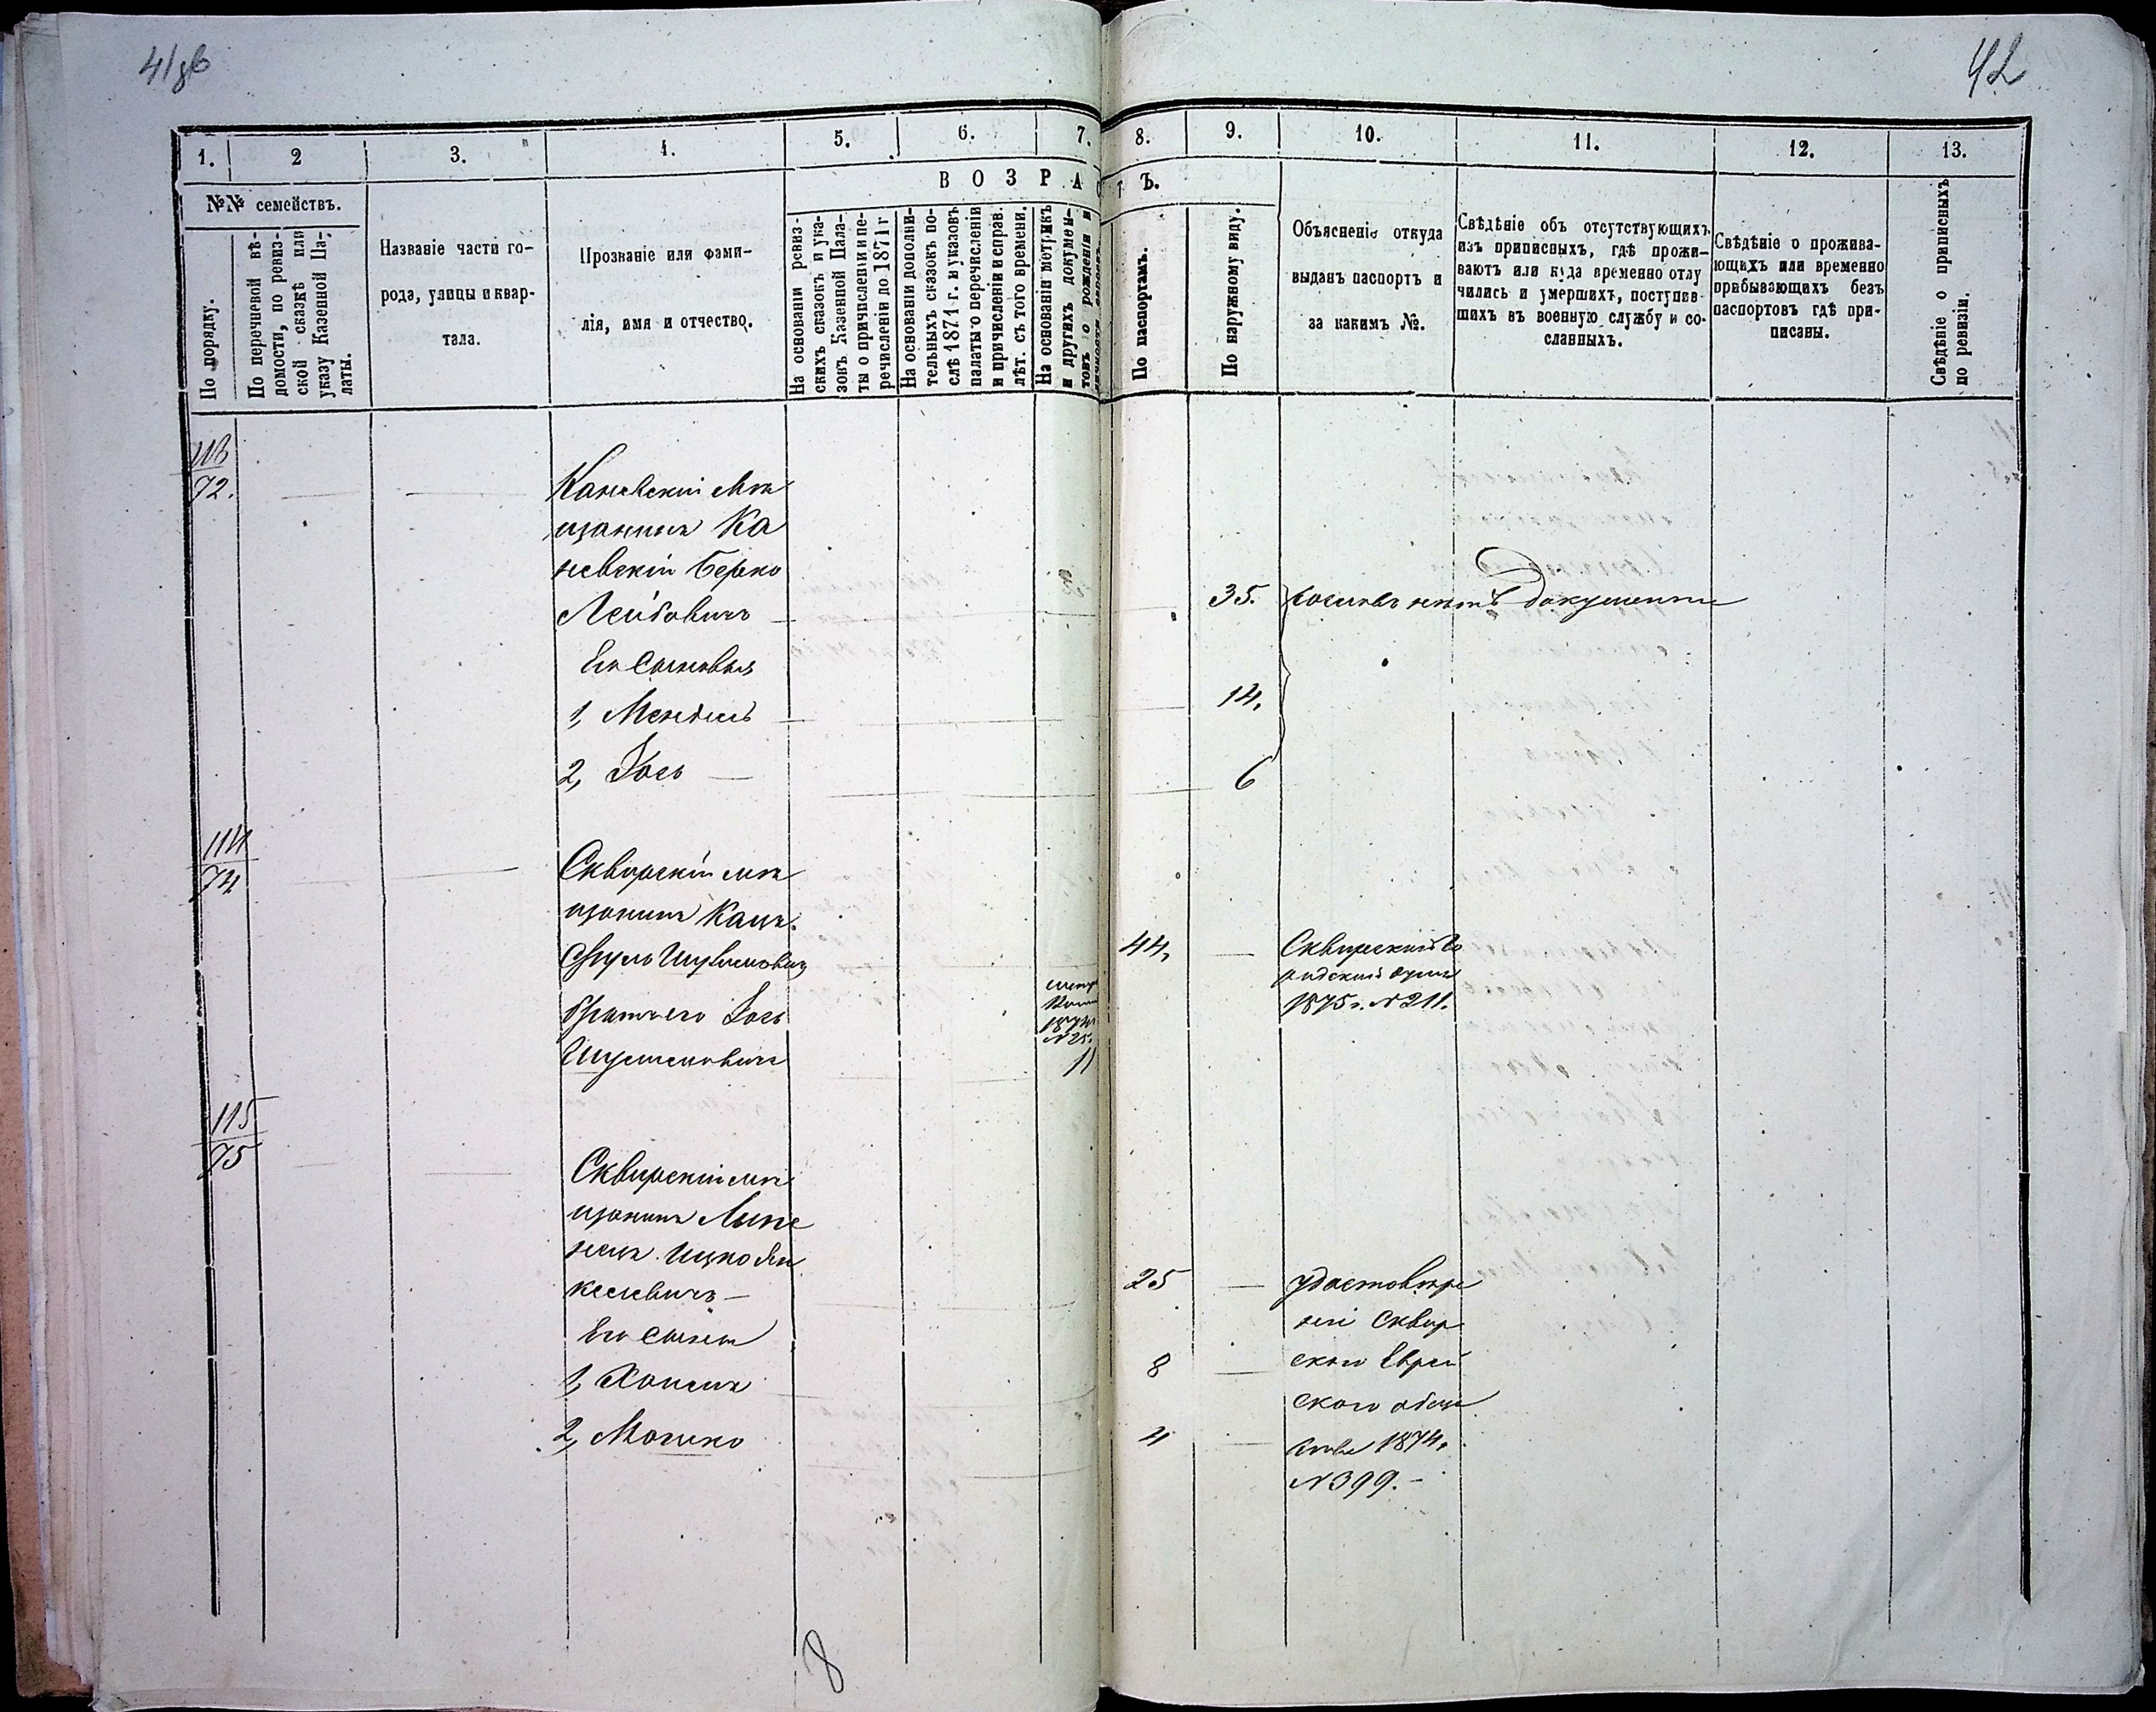 42
1.
2
3.
4.
5.
6.
7.
8.
9.
10.
11.
12.
13.
В О З Р А
Ъ.
№№ семействъ.
По порядку.
По перечневой вѣ-
домости, по ревиз-
ской сказкѣ или
указу Казенной Па-
латы.
Названіе части го-
рода, улицы и квар-
тала.
Прозваніе или фами-
лія, имя и отчество.
На основаніи ревиз-
скихъ сказокъ и ука-
зовъ Казенной Пала-
ты о причисленіи и пе-
речисленіи до 1871 г
На основаніи дополни-
тельныхъ сказокъ по-
слѣ 1871 г. и указовъ
палаты о перечисленіи
и причисленіи и справ.
лѣт. съ того времени.
На основаніи метрикъ
и другихъ докумен-
товъ о рожденіи и
По паспортамъ.
По наружному виду.
Объясненіе откуда
выданъ паспортъ и
за какимъ №.
Свѣдѣніе объ отсутствующихъ
изъ приписныхъ, гдѣ прожи-
ваютъ или куда временно отлу
чились и умершихъ, поступив-
шихъ въ военную службу и со-
сланныхъ.
Свѣдѣніе о прожива-
ющихъ или временно
прибывающихъ безъ
паспортовъ гдѣ при-
писаны.
Свѣдѣніе о приписныхъ
по ревизіи.
72.
Каневскій мѣ
щанинъ Ка
невскій Берко
Лейбовичъ
35.
документы
Его сыновья
1, Мендель
14.
2, Іось
6
114
74
Сквирскій мѣ
щанинъ Кацъ
44,
Сквирскій Го
родской
1875 г. № 211.
братъ его Іось
11
115
75
Сквирскій мѣ
щанинъ Липе
нецъ Ицко Ян
келевичъ
25
удостовѣре
ніе Сквир
Его сыны
скаго Еврей
1, Хаимъ
8
скаго обще
2, Мошко
4
ства 1874.
№ 399.
8